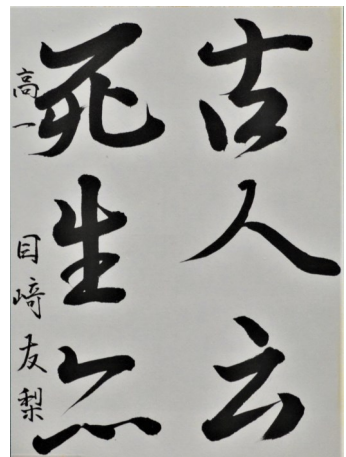 古人云
死生亦
高一 目﨑友梨